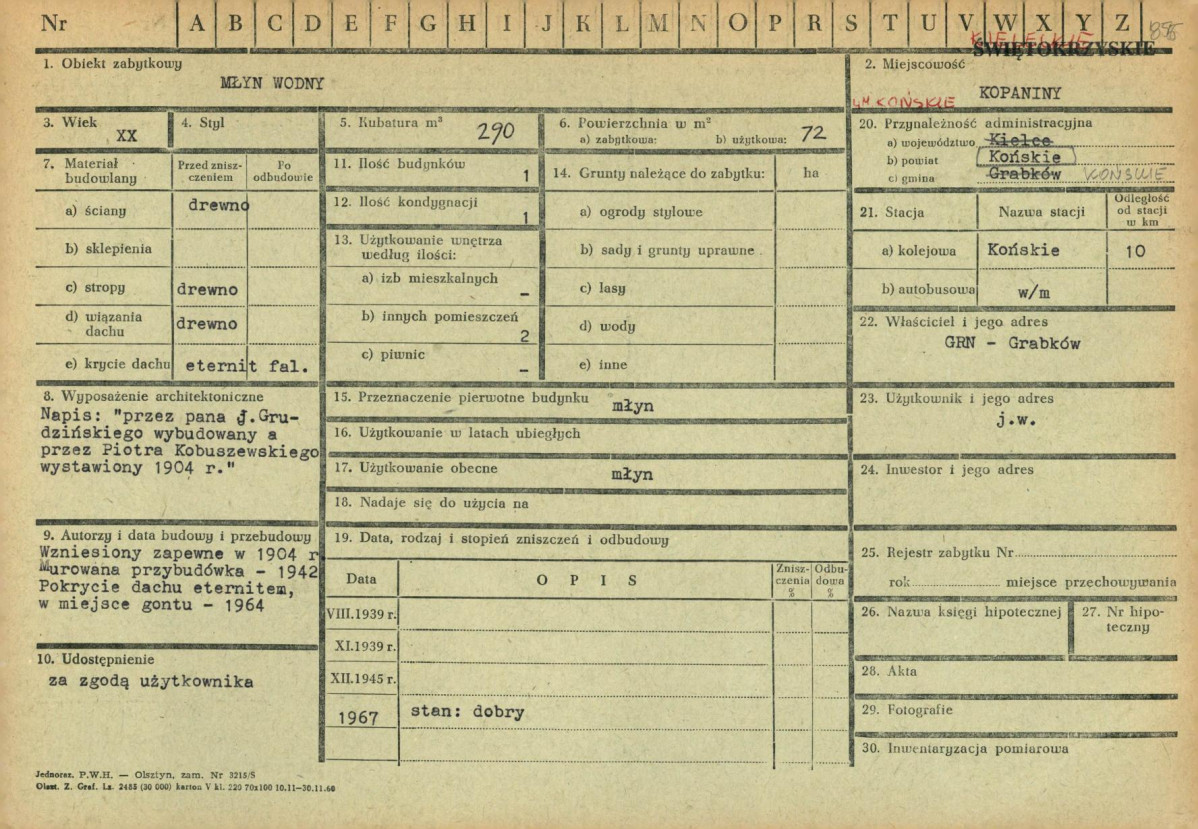 Nr A B C D E F G H I J K L M N O P R S T U V W X Y Z 856
KIELECKIE
ŚWIĘTOKRZYSKIE
1. Obiekt zabytkowy
MŁYN WODNY
2. Miejscowość
KOPANINY
KOŃSKIE
3. Wiek
XX
4. Styl
5. Kubatura m³
290
6. Powierzchnia w m²
a) zabytkowa: b) użytkowa: 72
20. Przynależność administracyjna
a) województwo Kielce
b) powiat Końskie
c) gmina Grabków KOŃSKIE
7. Materiał budowlany
Przed znisz-
czeniem
Po
odbudowie
a) ściany drewno
b) sklepienia
c) stropy drewno
d) wiązania
dachu drewno
e) krycie dachu eternit fal.
11. Ilość budynków
1
12. Ilość kondygnacji
1
13. Użytkowanie wnętrza
według ilości:
a) izb mieszkalnych
–
b) innych pomieszczeń
2
c) piwnic
–
14. Grunty należące do zabytku: ha
a) ogrody stylowe
b) sady i grunty uprawne
c) lasy
d) wody
e) inne
21. Stacja Nazwa stacji
Odległość
od stacji
w km
a) kolejowa Końskie 10
b) autobusowa w/m
22. Właściciel i jego adres
GRN - Grabków
8. Wyposażenie architektoniczne
Napis: "przez pana J.Gru-
dzińskiego wybudowany a
przez Piotra Kobuszewskiego
wystawiony 1904 r."
15. Przeznaczenie pierwotne budynku młyn
16. Użytkowanie w latach ubiegłych
17. Użytkowanie obecne młyn
18. Nadaje się do użycia na
23. Użytkownik i jego adres
j.w.
24. Inwestor i jego adres
9. Autorzy i data budowy i przebudowy
Wzniesiony zapewne w 1904 r
Murowana przybudówka - 1942
Pokrycie dachu eternitem,
w miejsce gontu - 1964
10. Udostępnienie
za zgodą użytkownika
19. Data, rodzaj i stopień zniszczeń i odbudowy
Data OPIS
Znisz-
czenia
%
Odbu-
dowa
%
VIII.1939 r.
XI.1939 r.
XII.1945 r.
1967 stan: dobry
25. Rejestr zabytku Nr
rok miejsce przechowywania
26. Nazwa księgi hipotecznej
27. Nr hipo-
teczny
28. Akta
29. Fotografie
30. Inwentaryzacja pomiarowa
Jednoraz. P.W.H. — Olsztyn, zam. Nr 3215/S
Olszt. Z. Graf. Lz. 2485 (30 000) karton V kl. 220 70x100 10.11—30.11.60